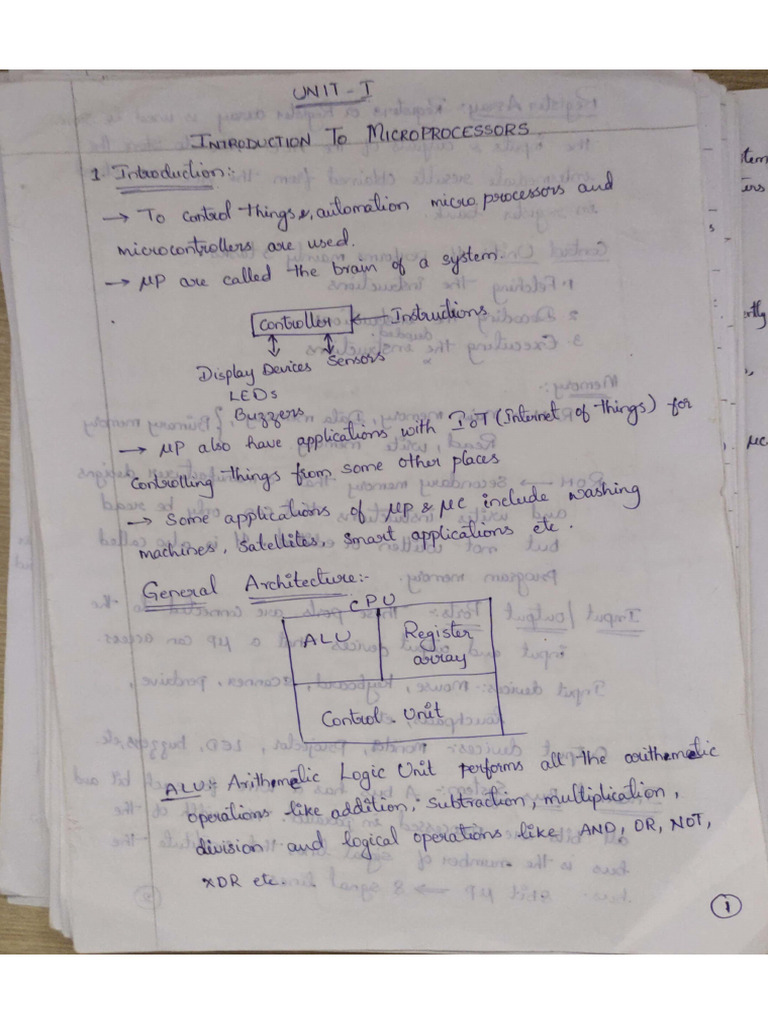 UNIT - I
INTRODUCTION TO MICROPROCESSORS.
1. Introduction:-
→ To control things &, automation micro processors and
microcontrollers are used.
→ μP are called the brain of a system.
Controller ← Instructions
Display Devices Sensors
LEDs
Buzzers
→ μP also have applications with IoT (Internet of things) for
controlling things from some other places
→ Some applications of μP & μC include washing
machines, Satellites, Smart applications etc.
General Architecture:-
CPU
ALU Register
array
Control Unit
ALU:- Arithmetic Logic Unit performs all the arithematic
operations like addition, subtraction, multiplication,
division and logical operations like AND, OR, NOT,
XOR etc.
1